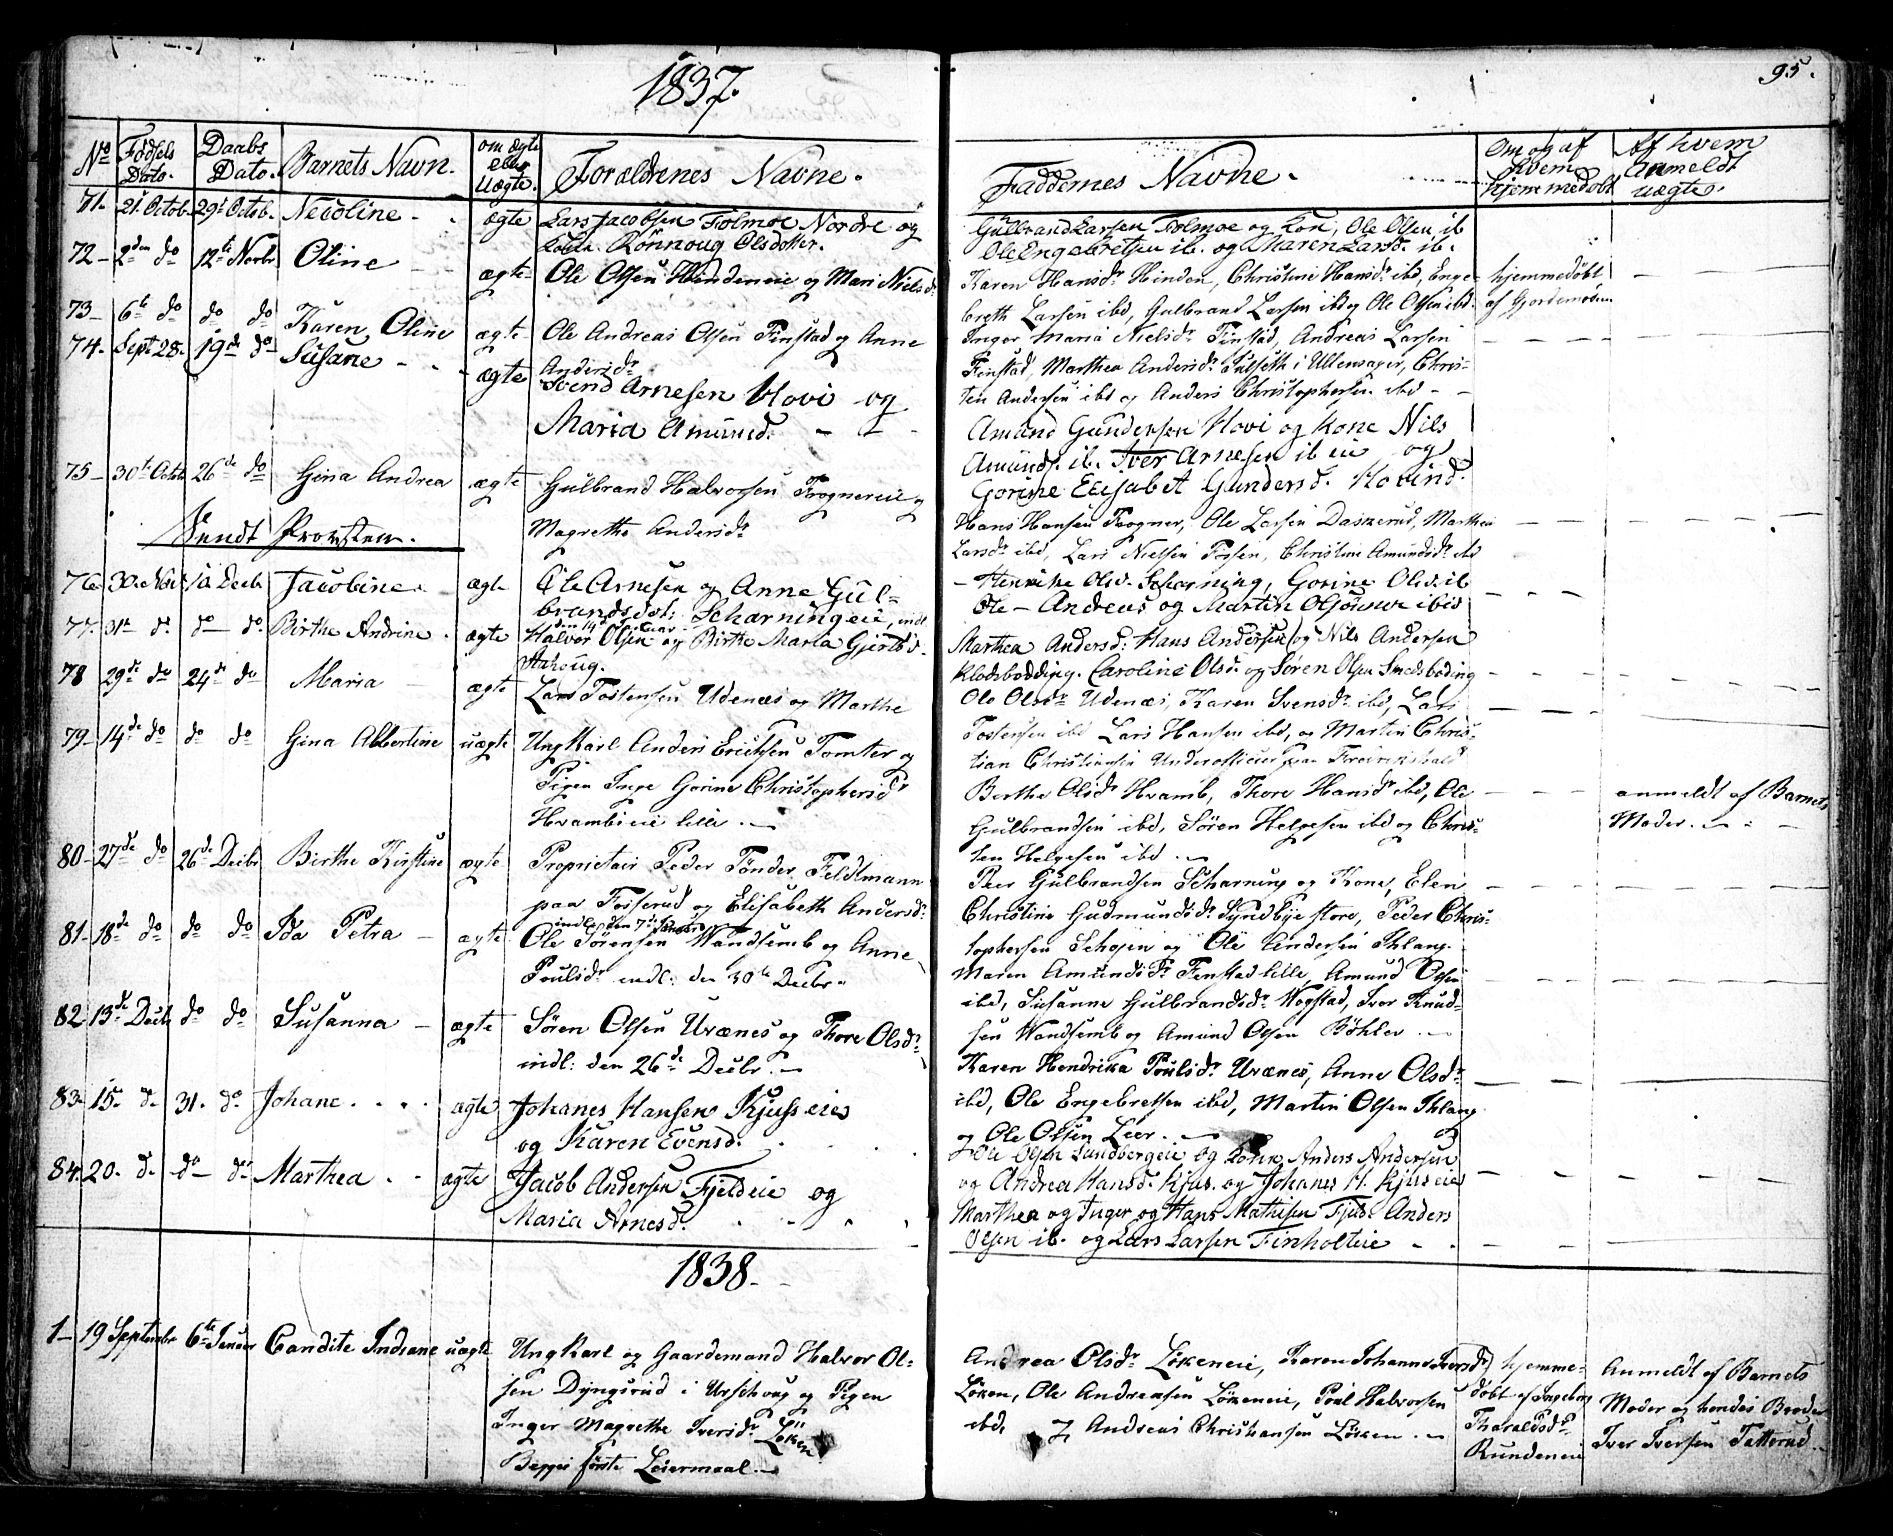 1837.
95.
No Fødsels Dato. Daabs Dato. Barnets Navn. om ægte eller uægte. Forældrenes Navne.
Faddernes Navne. Om og af hvem hjemmedøbt Af hvem Anmeldt uægte.
71. 21. Octob. 29de Octob. Nicoline - ægte Lars Jacobsen Folmoe Nordre og
Kone Rönnoug Olsdotter.
Gulbrand Larsen Folmoe og Kon, Ole Olsen ib
Ole Engebretsen ib. og Maren Larsd. ib.
72 - 2den do 12te Novbr Oline - ægte Ole Olsen Hindeneie og Mari Nielsdr
Karen Hansdr Hinden, Christine Hansdr ibd, Enge-
breth Larsen ibd, Gulbrand Larsen ibd og Ole Olsen ibd.
hjemmedöbt
af Gjordemoderen
73 - 6te do do do Karen Oline ægte Ole Andreas Olsen Finstad og Anne
Andersdr
Inger Maria Nielsdr Finstad, Andreas Larsen
Finstad, Marthea Andersdr i Ullensager, Chris-
ten Andersen ibd og Anders Christophersen ibd - -
74. Sept 28. 19de do Susane - - ægte Svend Arnesen Hovi og
Maria Amund. - -
Amund Gundersen Hovi og Kone Nils
Amunds. ib. Iver Arnesen ib eie og
Gorine Elisabet Gundersd. Hovind.
75 - 30te Octob 26de do Gina Andrea ægte Gulbrand Halvorsen Frognereie og
Magrethe Andersdr
Hans Hansen Frogner, Ole Larsen Daskerud, Marthea
Larsdr ibd, Lars Nielsen Fossen, Christine Amundsdr ibd
Sendt Provsten.
76 30. Nov 10 Decbr Jacobine - ægte Ole Arnesen og Anne Gul-
brandsdot: Scharningeie, indl
- Henrike Olsd. Scharning, Gorine Olsd. ib
Ole - Andreas og Martin ibid
77. 31te do. do do. Birthe Andrine. ægte Halvor Olsen og Birthe Maria Gjertsd.
Marthea Andersd. Hans Andersen og Nils Andersen
Klodsbodding. Caroline Olsd. og Søren Olsen Smedsboding
78 29de do 24de do Maria - ægte Lars Tostensen Udenæs og Marthe
Ole Olsdr Udenæs, Karen Svensdr ibd, Lars
Tostensen ibd Lars Hansen ibd, og Martin Chris-
tian Christiansen Underofficeer paa Fredrikshald
79 - 14de do do do Gina Albertine uægte Ungkarl Anders Erichsen Tomter og
Pigen Inge Gorine Christophersdr
Hrambseie lille. -
Berthe Olsdr Hramb, Thore Hansdr ibd, Ole
Gulbrandsen ibd, Søren Helgesen ibd og Chris-
ten Helgesen ibd. -
anmeldt af Barnets
Moder. - -
80 - 27de do 26de Decbr Birthe Kirstine ægte Proprietair Peder Tönder Feldtmann
paa Fosserud og Elisabeth Andersdr
indl. den 7de
Peer Gulbrandsen Scharning og Kone, Elen
Christine Gudmundsdr Syndbye store, Peder Chris-
tophersen Schøjen og Ole Andersen Ihlang.
81 - 18de do do do Ida Petra - ægte Ole Sørensen Wandsemb og Anne
Poulsdr indl: den 30te Decbr.
Maren Amundsdr Finstad lille, Amund Olsen
ibd, Susanne Gulbrandsdr Wogstad, Iver Knud-
sen Wandsemb og Amund Olsen Böhler. -
82. 13de Decb do do Susanna - ægte Søren Olsen Urænes og Thore Olsdr
indl: den 26de Decbr. -
Karen Hendrika Poulsdr Urænes, Anne Olsdr
ibd, Ole Engebretsen ibd, Martin Olsen Ihlang
og Ole Olsen Leer. -
83. 15. d. 31. do Johane. . . . ægte Johanes Hansen Kjusseie
og Karen Evensd.
Ole Olsen Sundbergeie og Kone Anders Andersen
og Andrea Hansd. Kjus. og Johanes H. Kjuseie
84. 20. d. do - do Marthea . . ægte Jacob Andersen Fjeldeie og
Maria Arnesd.
Marthea og Inger og Hans Mathisen Fjeld Anders
Olsen ib. og Lars Larsen Finholteie - .
1838.
1 - 19 Septembr 6te Januar Candite Indiane uægte Ungkarl og Gaardemand Halvor Ol-
sen Dyngsrud i Urschoug og Pigen
Inger Magrethe Iversdr Löken
Begges første Leiermaal. -
Andrea Olsdr Lökeneie, Karen Johanne Iversdr
Löken, Ole Andreasen Lökeneie, Poul Halvorsen
ibd, og Andreas Christiansen Löken. -
hjemme-
döbt af Ingeborg
Tharaldsdr
Rundeneie
Anmeldt af Barnets
Moder og hendes Broder
Iver Iversen Tatterud. -